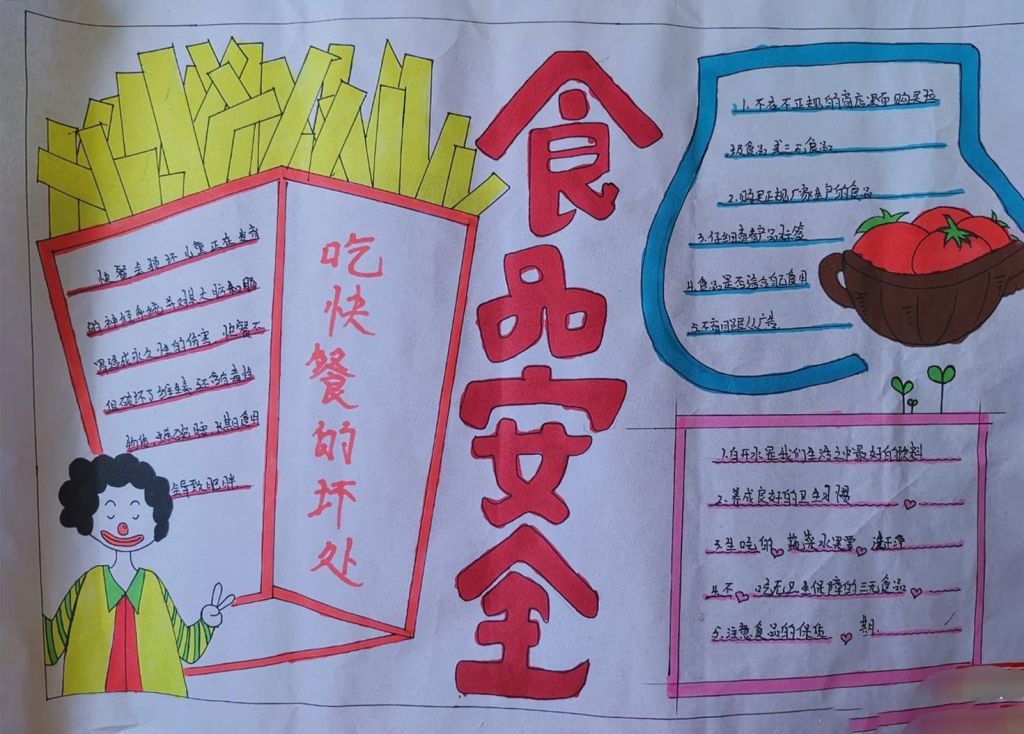 快餐会损坏儿童正在发育
的神经系统，并对其大脑和肠
胃造成永久性的伤害，快餐不
但破坏了维生素，还含有毒性
长期食用
会导致肥胖.
吃快餐的坏处
食品安全
1.不在不正规的商店
食品或三元食品
2.购买正规厂家生产的食品
3.仔细查看产品标签
4.食品是否适合自己食用
5.不盲目跟从广告
1.白开水是我们生活之中最好的饮料
2.养成良好的卫生习惯
3.生吃的蔬菜水果要洗干净
4.不吃无卫生保障的三元食品
5.注意食品的保质期.